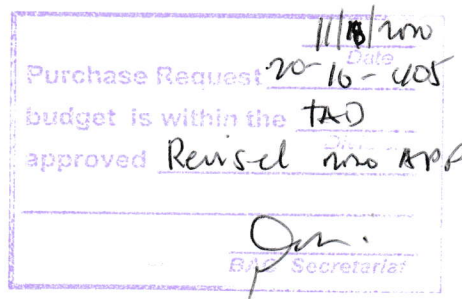 11/18/2020
Date
Purchase Request 20-10-405
budget is within the TAD
Division
approved Revised 2020 APP
BAC Secretariat